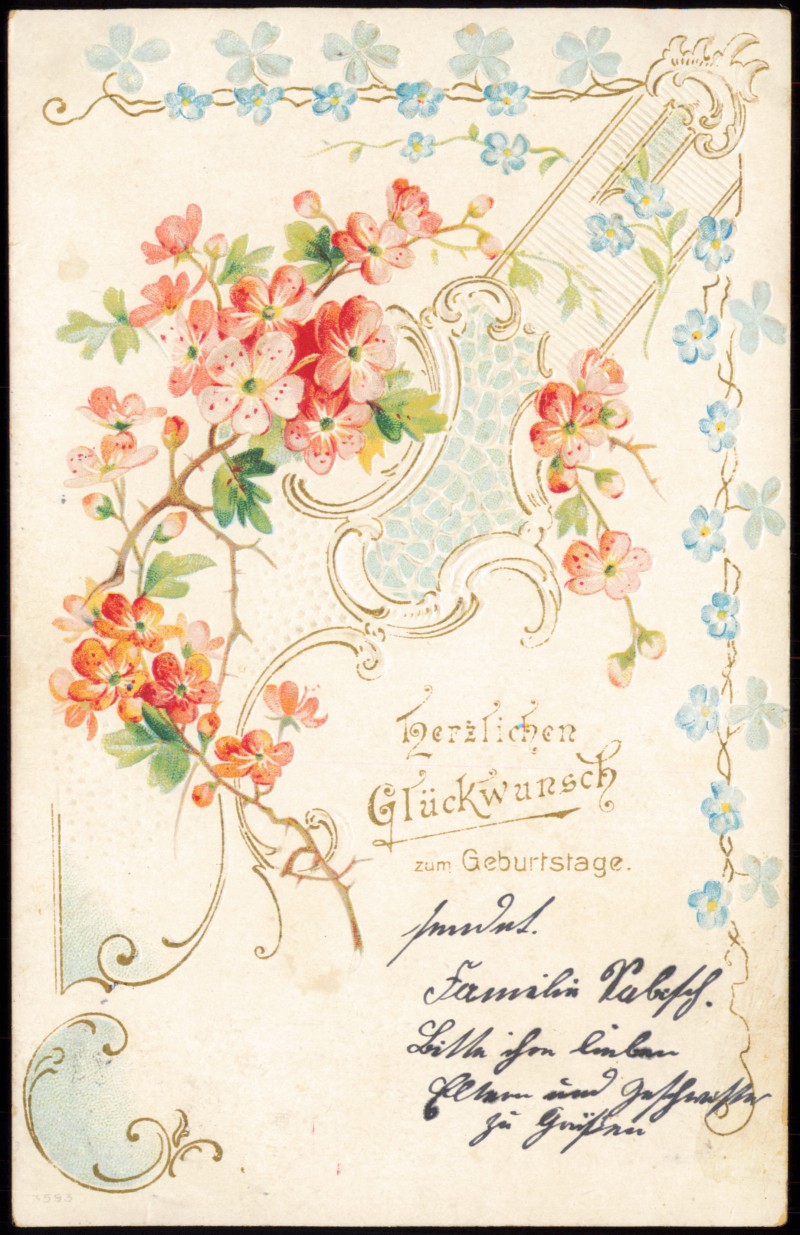 Herzlichen
Glückwunsch
zum Geburtstage.
sendet.
Familie
Bitte ihre lieben
Eltern und Geschwister
zu Grüßen
3593